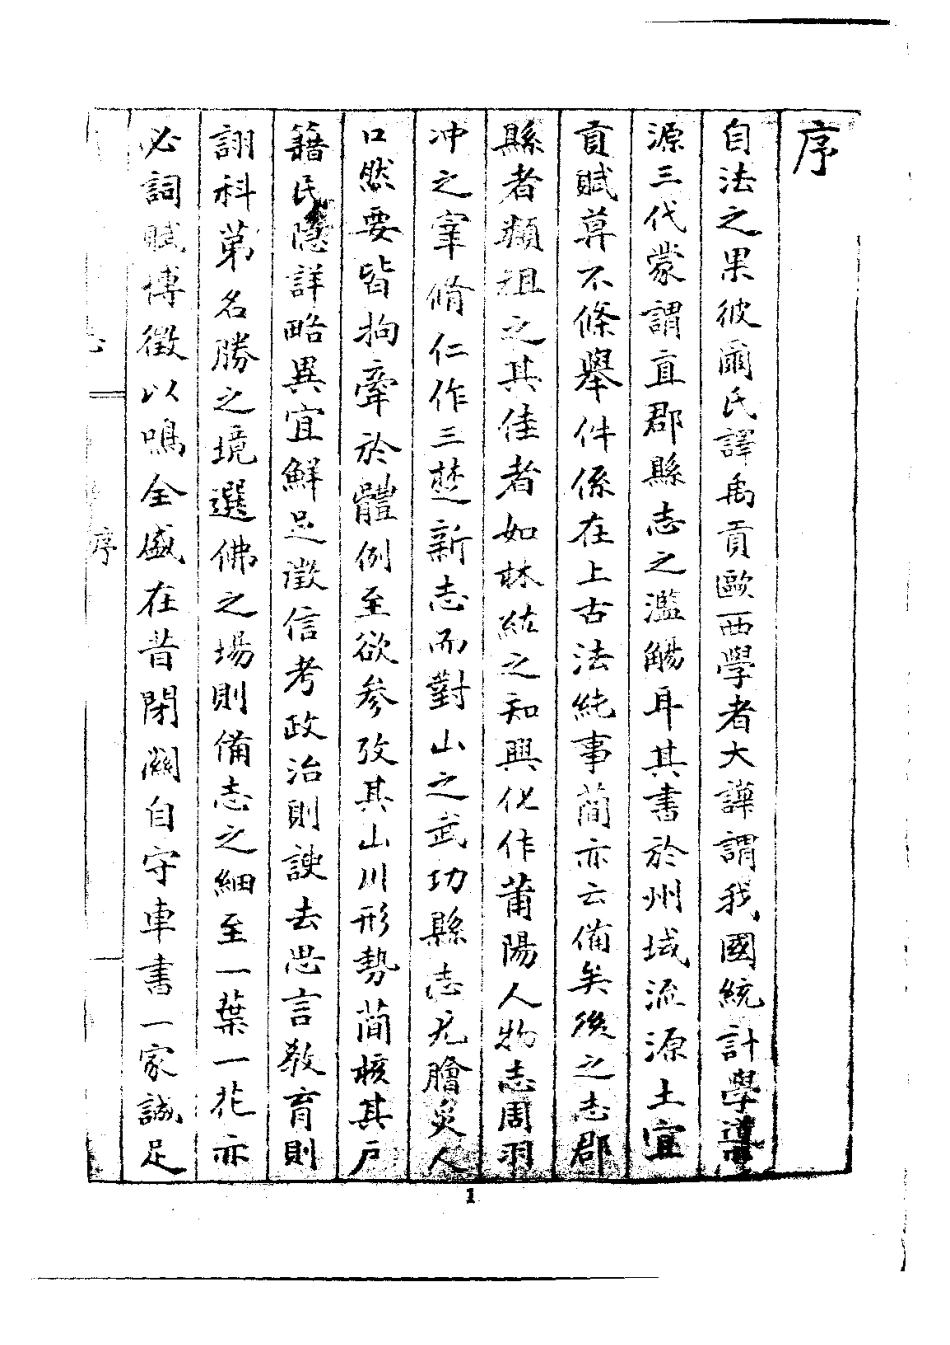 序
自法之果彼爾氏譯禹貢歐西學者大譁謂我國統計學導
源三代蒙謂直郡縣志之濫觴耳其書於州域流源土宜
貢賦莫不條舉件係在上古法純事簡亦云備矣後之志郡
縣者類祖之其佳者如林紘之知興化作莆陽人物志周羽
冲之宰脩仁作三楚新志而對山之武功縣志尤膾炙人
口然要皆拘牽於體例至欲參攷其山川形勢簡核其戶
籍民隱詳略異宜鮮足徵信考政治則諛去思言教育則
詡科第名勝之境選佛之場則備志之細至一葉一花亦
必詞賦博徵以鳴全盛在昔閉關自守車書一家誠足
志
序
1